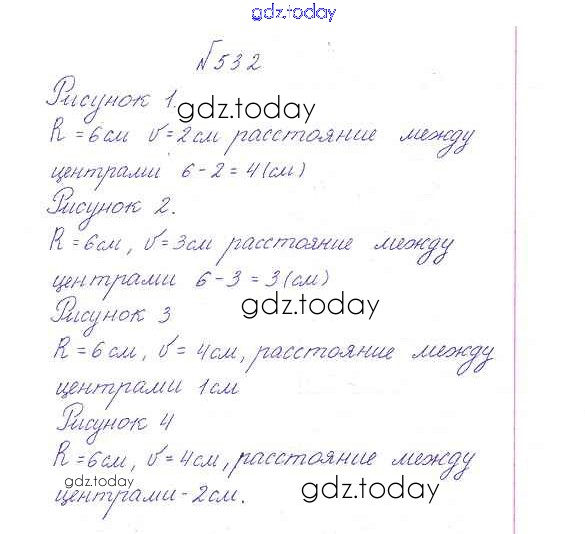 gdz.today
№532
Рисунок 1.
gdz.today
R = 6см r = 2см расстояние между
центрами 6 - 2 = 4 (см)
Рисунок 2.
R = 6см, r = 3см расстояние между
центрами 6 - 3 = 3 (см)
Рисунок 3
gdz.today
R = 6см, r = 4см, расстояние между
центрами 1см
Рисунок 4
R = 6см, r = 4см, расстояние между
gdz.today
центрами - 2см.
gdz.today